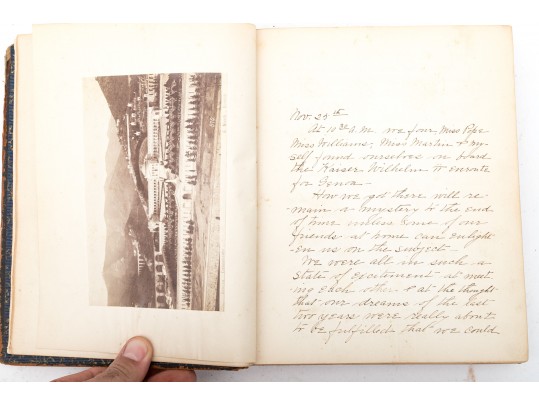 Nov. 25th
At 11 A.M. we four Miss Pope
Miss Williams, Miss Martin & my-
self found ourselves on board
the Kaiser Wilhelm II en route
for Genoa—
How we got there will re
main a mystery to the end
of time unless some of our
friends at home can enlight
-en us on the subject—
We were all in such a
state of excitement at meet
ing each other & at the thought
that our dreams of the last
two years were really about
to be fulfilled that we could